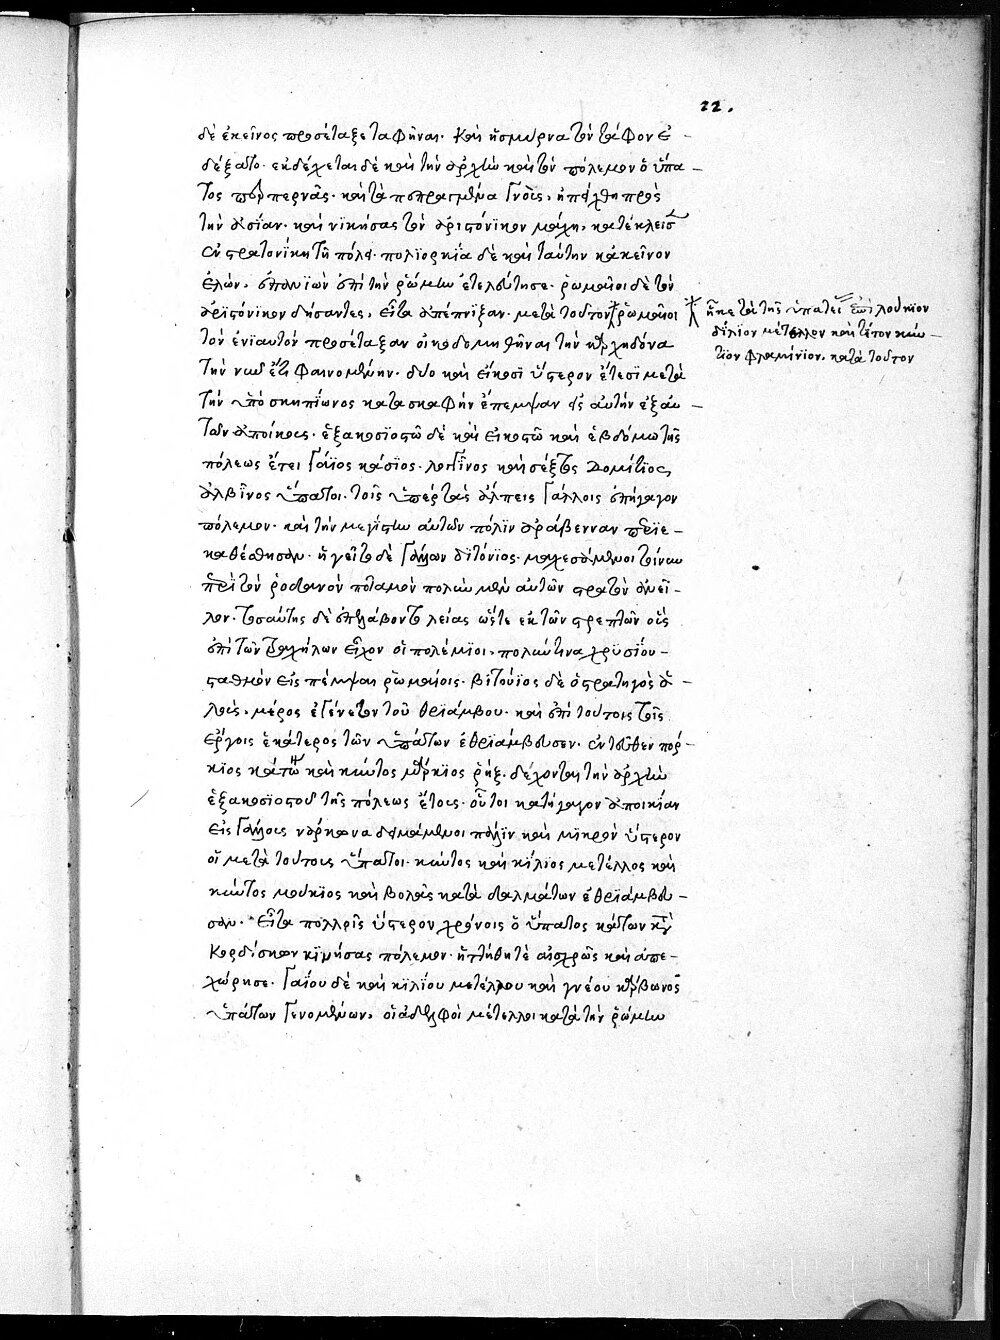 22.
δὲ ἐκεῖνος προσέταξε ταφῆναι. καὶ ἡ σμύρνα τὸν τάφον ἐ-
δέξατο. ἐκδέχεται δὲ καὶ τὴν ἀρχὴν καὶ τὸν πόλεμον ὁ ὕπα-
τος περπερνᾶς. καὶ τὰ πεπραγμένα γνοὺς, ἠπείχθη πρὸς
τὴν ἀσΐαν. καὶ νϊκήσας τὸν ἀριστόνικον μάχη, κατέκλεισ
ἐν στρατονίκη τῇ πόλει. πολϊορκία δὲ καὶ ταύτην κἀκεῖνον
ἑλὼν, ἐπανϊὼν ἐπὶ τὴν ῥώμην ἐτελεύτησε. ῥωμαῖοι δὲ τὸν
ἀριστόνικον δήσαντες, εἶτα ἀπέπνιξαν. μετὰ τοῦτον ῥωμαῖοι
τὸν ἐνϊαυτὸν προσέταξαν οἰκοδομηθῆναι τὴν καρχηδόνα
τὴν νῦν ἔτι φαινομένην. δύο καὶ εἴκοσϊ ὕστερον ἔτεσϊ μετὰ
τὴν ὑπὸ σκηπΐωνος κατασκαφὴν ἔπεμψαν εἰς αὐτὴν ἐξ αὐ-
τῶν ἀποίκους. ἑξακοσϊοστῶ δὲ καὶ εἰκοστῶ καὶ ἑβδόμω τῆς
πόλεως ἔτει γάϊος κάσϊος λογγῖνος καὶ σέξτος δομίτϊος
ἀλβῖνος ὕπατοι. τοῖς ὑπὲρ τὰς ἄλπεις γάλλοις ἐπήγαγον
πόλεμον. καὶ τὴν μεγίστην αὐτῶν πόλϊν ἀράβενναν περϊε-
καθέσθησαν. ἡγεῖτο δὲ γάλλων βϊτόνϊος. μαχεσάμενοι τοίνυν
περὶ τὸν ῥοδανὸν ποταμὸν πολὺν μὲν αὐτῶν στρατὸν ἀνεῖ-
λον. τοσαύτης δὲ ἐπελάβοντο λείας ὥστε ἐκ τῶν στρεπτῶν οὓς
ἐπὶ τῶν τραχήλων εἶχον οἱ πολέμϊοι, πολύν τινα χρυσίου
σταθμὸν εἰς πέμψαι ῥωμαίοις. βϊτούϊος δὲ ὁ στρατηγὸς ἁ-
λοὺς, μέρος ἐγένετο τοῦ θρϊάμβου. καὶ ἐπὶ τούτοις τοῖς
ἔργοις ἑκάτερος τῶν ὑπάτων ἐθρϊάμβευσεν. ἐντεῦθεν πόρ-
κϊος κάτων καὶ κύϊντος μάρκϊος ῥήξ. δέχονται τὴν ἀρχὴν
ἑξακοσϊοστοῦ τῆς πόλεως ἔτους. οὗτοι κατήγαγον ἀποικίαν
εἰς γάλλους νάρκωνα δειμάμενοι πόλϊν καὶ μϊκρὸν ὕστερον
οἱ μετὰ τούτους ὕπατοι. κύϊντος καὶ κίλϊος μετέλλος καὶ
κύϊντος μούκϊος καὶ βολᾶς κατὰ δαλματῶν ἐθρϊάμβευ-
σαν. εἶτα πολλοῖς ὕστερον χρόνοις ὁ ὕπατος κάτων κατὰ
κορδίσκων κϊνήσας πόλεμον. ἡττήθη τὲ αἰσχρῶς καὶ ἀπε-
χώρησε. γαΐου δὲ καὶ κϊλΐου μετέλλου καὶ γνέου κάρβωνος
ὑπάτων γενομένων, οἱ ἀδελφοὶ μέτελλοι κατὰ τὴν ῥώμην
ἧκε τὰ τῆς ὑπατείας ἐπὶ λούκϊον
δίλϊον μέτελλον καὶ τίτον κυϊν-
τϊον φλαμίνϊον, κατὰ τοῦτον